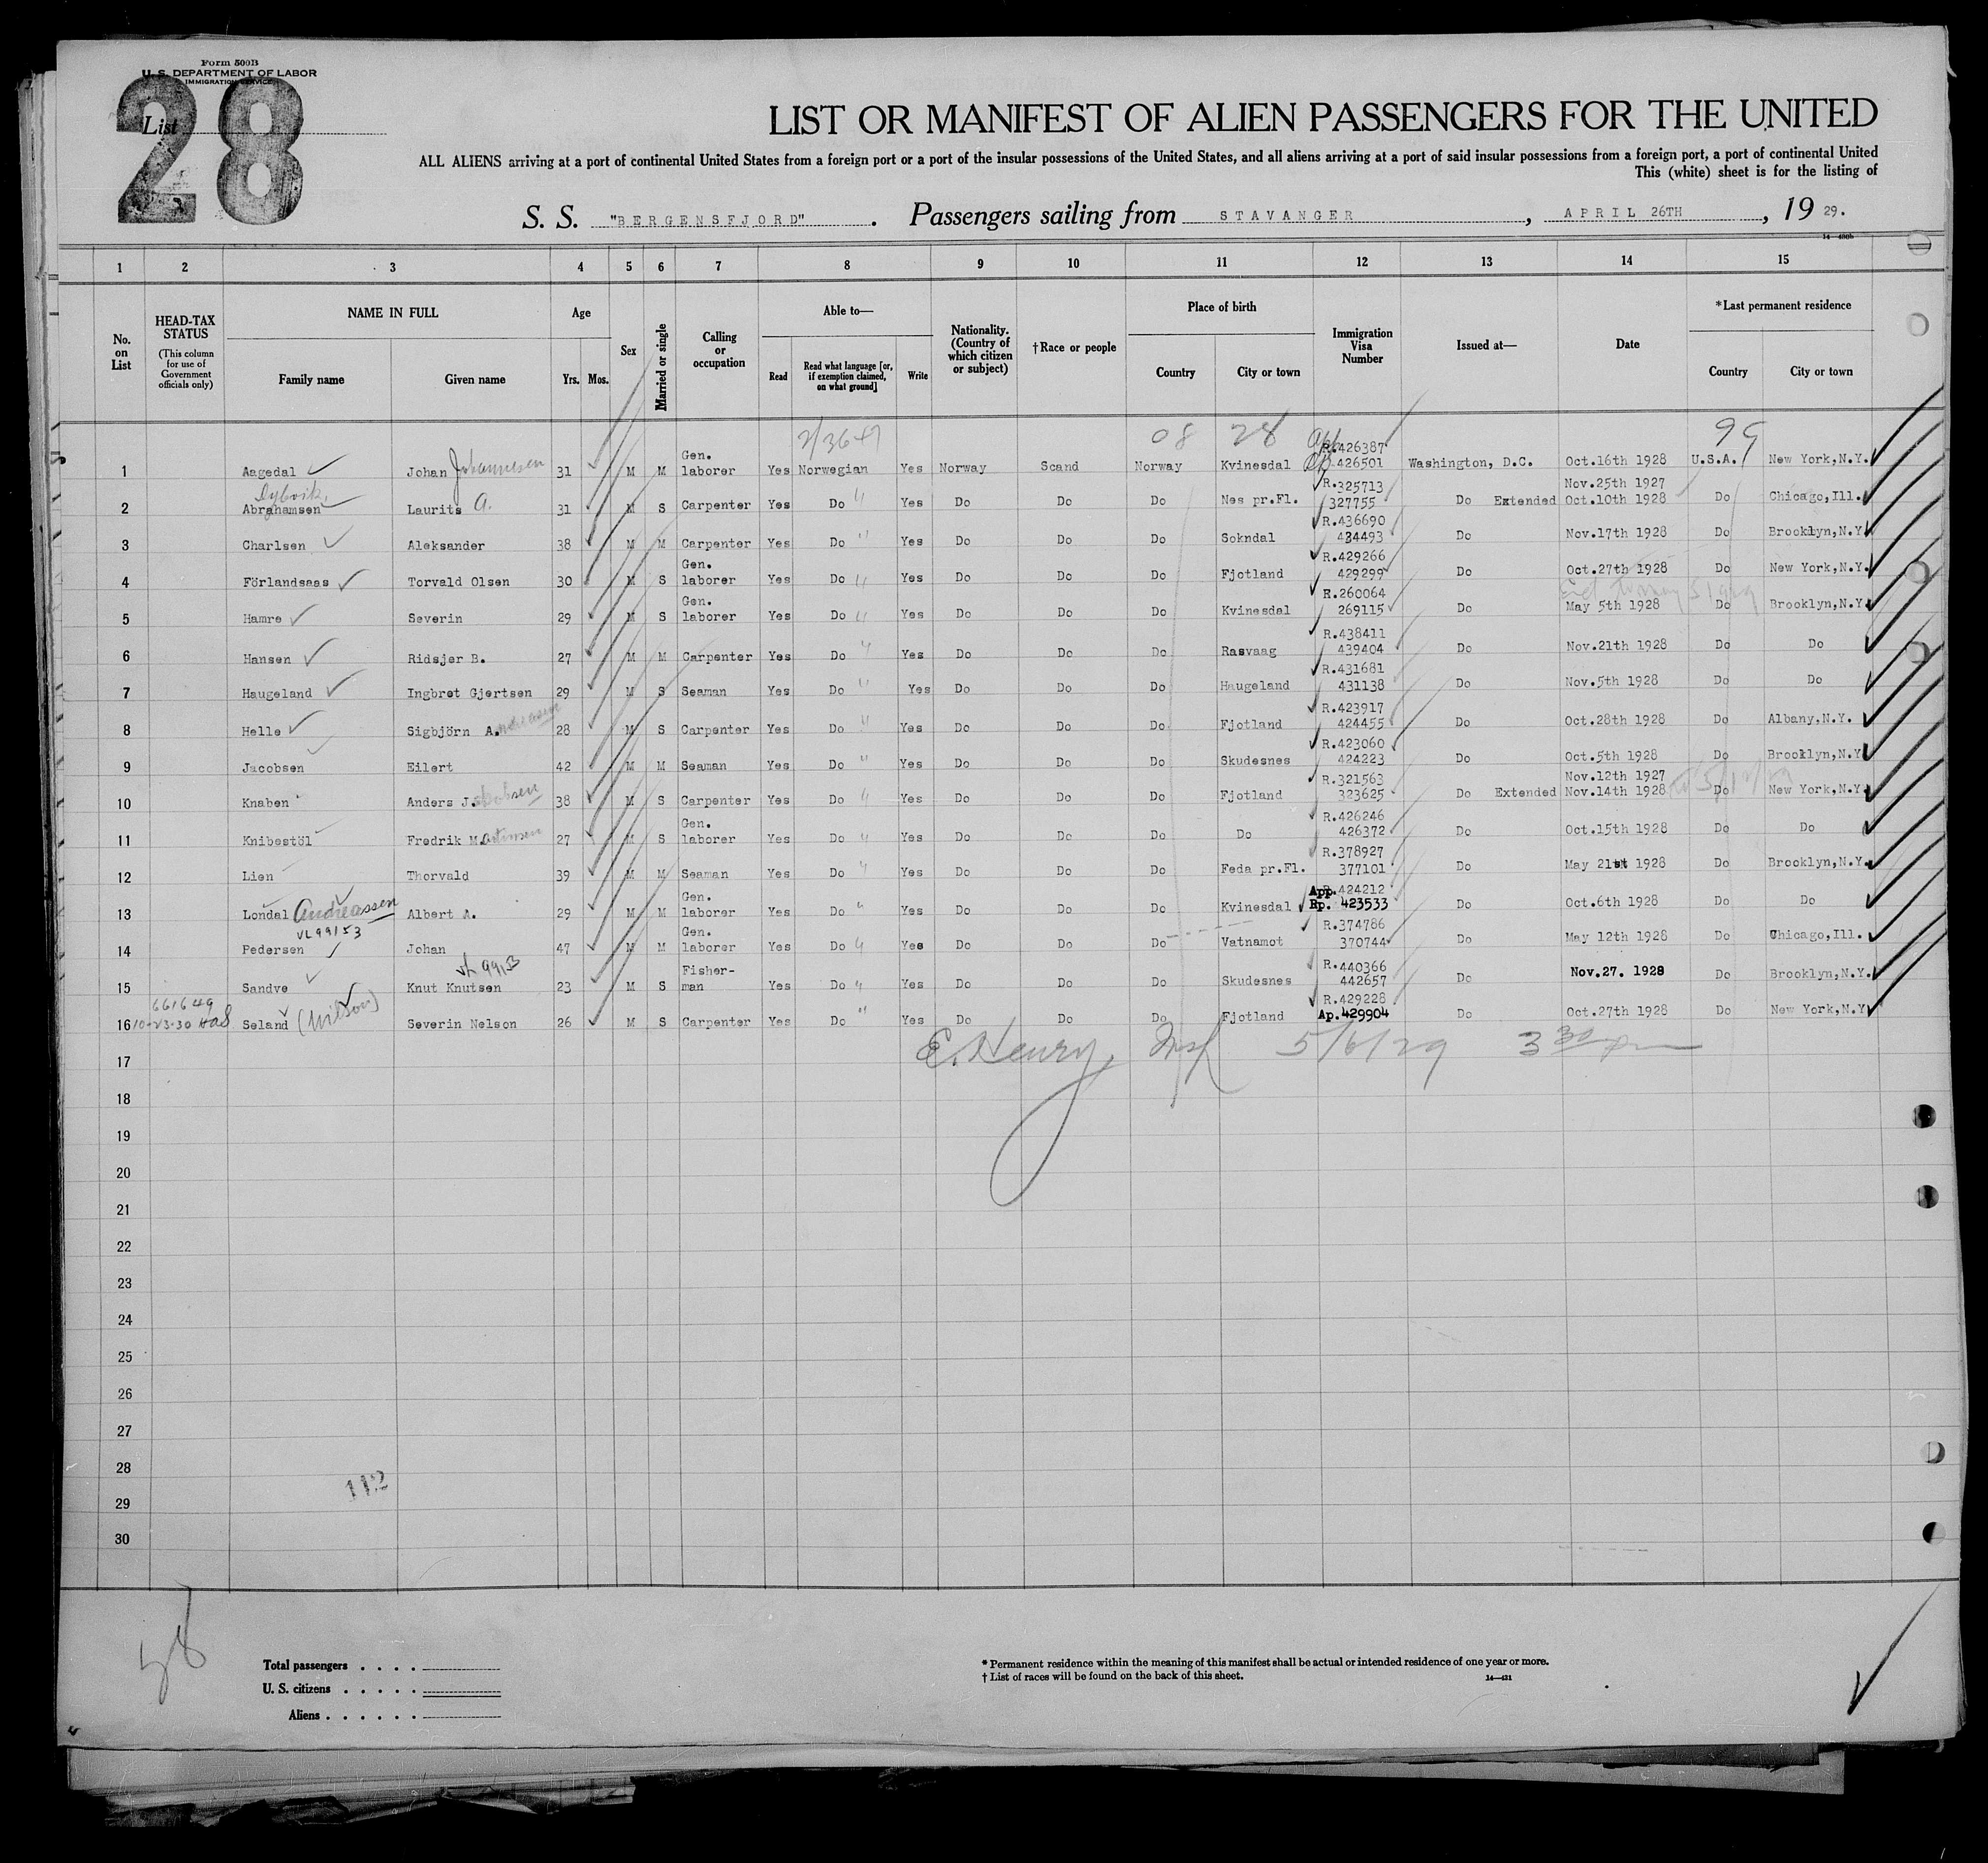 Form 500B
U. S. DEPARTMENT OF LABOR
IMMIGRATION SERVICE
List
28
LIST OR MANIFEST OF ALIEN PASSENGERS FOR THE UNITED
ALL ALIENS arriving at a port of continental United States from a foreign port or a port of the insular possessions of the United States, and all aliens arriving at a port of said insular possessions from a foreign port, a port of continental United
This (white) sheet is for the listing of
S. S. "BERGENSFJORD". Passengers sailing from STAVANGER, APRIL 26TH, 19 29.
1 2 3 4 5 6 7 8 9 10 11 12 13 14 15
No. on List
HEAD-TAX STATUS (This column for use of Government officials only)
NAME IN FULL Family name Given name
Age Yrs. Mos.
Sex
Married or single
Calling or occupation
Able to— Read Read what language [or, if exemption claimed, on what ground] Write
Nationality. (Country of which citizen or subject)
†Race or people
Place of birth Country City or town
Immigration Visa Number
Issued at—
Date
*Last permanent residence Country City or town
2/3647 08 28 99
1 Aagedal Johan Johannesen 31 M M Gen. laborer Yes Norwegian Yes Norway Scand Norway Kvinesdal R.426387 426501 Washington, D.C. Oct.16th 1928 U.S.A. New York,N.Y.
2 Dybvik Abrahamsen Laurits A. 31 M S Carpenter Yes Do Yes Do Do Do Nes pr.Fl. R.325713 327755 Do Extended Nov.25th 1927 Oct.10th 1928 Do Chicago,Ill.
3 Charlsen Aleksander 38 M M Carpenter Yes Do Yes Do Do Do Sokndal R.436690 434493 Do Nov.17th 1928 Do Brooklyn,N.Y.
4 Förlandsaas Torvald Olsen 30 M S Gen. laborer Yes Do Yes Do Do Do Fjotland R.429266 429299 Do Oct.27th 1928 Do New York,N.Y.
5 Hamre Severin 29 M S Gen. laborer Yes Do Yes Do Do Do Kvinesdal R.260064 269115 Do May 5th 1928 Do Brooklyn,N.Y.
6 Hansen Ridsjer B. 27 M M Carpenter Yes Do Yes Do Do Do Rasvaag R.438411 439404 Do Nov.21th 1928 Do Do
7 Haugeland Ingbret Gjertsen 29 M S Seaman Yes Do Yes Do Do Do Haugeland R.431681 431138 Do Nov.5th 1928 Do Do
8 Helle Sigbjörn A. 28 M S Carpenter Yes Do Yes Do Do Do Fjotland R.423917 424455 Do Oct.28th 1928 Do Albany,N.Y.
9 Jacobsen Eilert 42 M M Seaman Yes Do Yes Do Do Do Skudesnes R.423060 424223 Do Oct.5th 1928 Do Brooklyn,N.Y.
10 Knaben Anders J. 38 M S Carpenter Yes Do Yes Do Do Do Fjotland R.321563 323625 Do Extended Nov.12th 1927 Nov.14th 1928 Do New York,N.Y.
11 Knibestöl Fredrik M. 27 M S Gen. laborer Yes Do Yes Do Do Do Do R.426246 426372 Do Oct.15th 1928 Do Do
12 Lien Thorvald 39 M M Seaman Yes Do Yes Do Do Do Feda pr.Fl. R.378927 377101 Do May 21st 1928 Do Brooklyn,N.Y.
13 Londal Andreassen Albert A. 29 M M Gen. laborer Yes Do Yes Do Do Do Kvinesdal App. 424212 Rp. 423533 Do Oct.6th 1928 Do Do
VL 99153
14 Pedersen Johan 47 M M Gen. laborer Yes Do Yes Do Do Do Vatnamot R.374786 370744 Do May 12th 1928 Do Chicago,Ill.
15 Sandve Knut Knutsen 23 M S Fisher- man Yes Do Yes Do Do Do Skudesnes R.440366 442657 Do Nov.27. 1928 Do Brooklyn,N.Y.
661649
10-23-30
16 Seland (Wilson) Severin Nelson 26 M S Carpenter Yes Do Yes Do Do Do Fjotland R.429228 Ap.429904 Do Oct.27th 1928 Do New York,N.Y
17 E. Henry, Insp 5/6/29 3 30 pm
18
19
20
21
22
23
24
25
26
27
28
112
29
30
58
Total passengers . . . .
U. S. citizens . . . . .
Aliens . . . . . .
* Permanent residence within the meaning of this manifest shall be actual or intended residence of one year or more.
† List of races will be found on the back of this sheet.
14—421